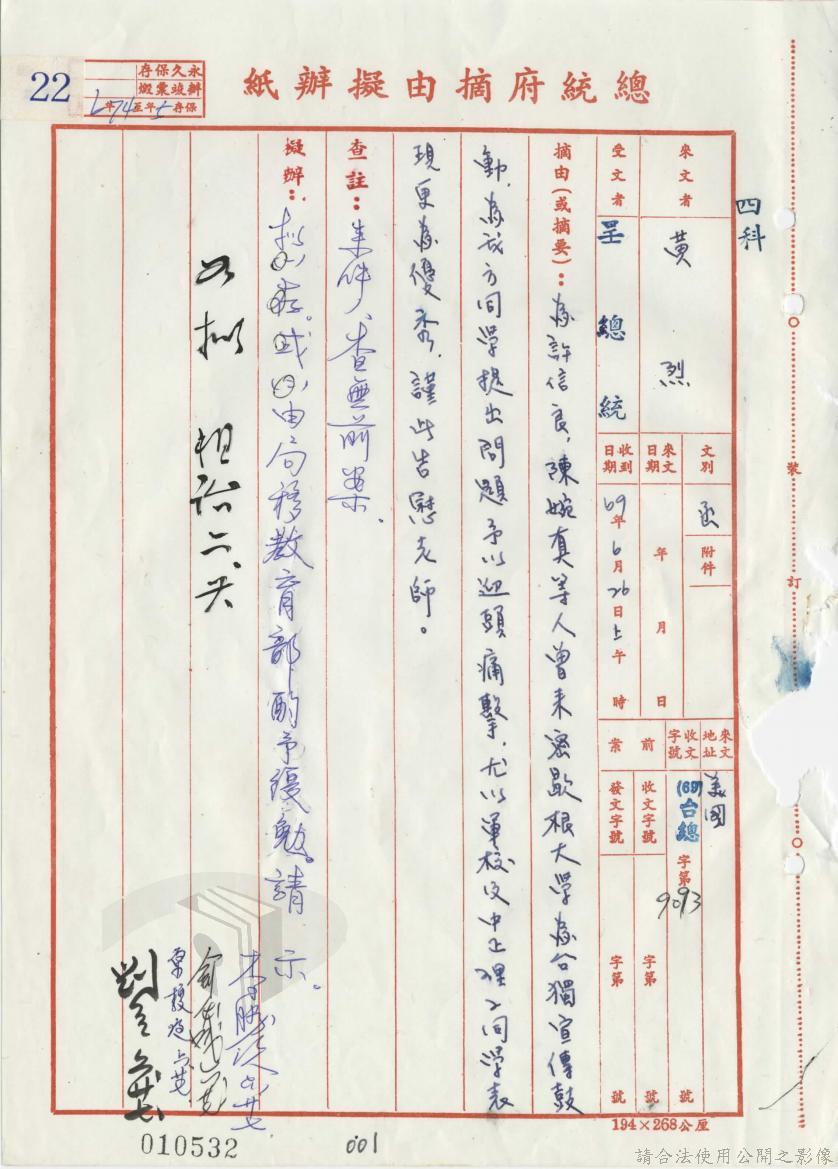 總統府摘由擬辦紙
22
永久保存
辦竣彙繳
保存
年至
年
四科
來文者
黃烈
受文者
呈總統
文別
函
附件
來文日期
年 月 日
收到日期
69年6月26日上午 時
來文地址
美國
收文字號
(69)台總
字第9093號
前案
收文字號
字第 號
發文字號
字第 號
摘由(或摘要):為許信良,陳婉真等人曾來密歇根大學為台獨宣傳鼓
動,為我方同學提出問題予以迎頭痛擊,尤以軍校及中正理工同學表
現更為優秀,謹此告慰老師。
查註:來件人查無前案.
擬辦:擬(一)存。或(二)由局移教育部酌予獎勉。請 示。
如擬
裝
訂
194×268公厘
010532
001
請合法使用公開之影像